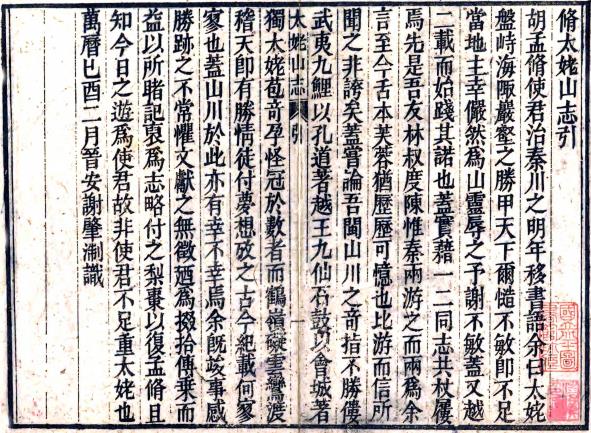 脩太姥山志引
胡孟脩使君治秦川之明年移書語余曰太姥
盤峙海陬巖壑之勝甲天下爾慥不敏即不足
當地主幸儼然為山靈辱之予謝不敏蓋又越
二載而始踐其諾也蓋實藉一二同志共杖屨
焉先是吾友林叔度陳惟秦兩游之而兩為余
言至今舌本芙蓉猶歷歷可憶也比游而信所
聞之非誇矣蓋嘗論吾閩山川之奇指不勝僂
武夷九鯉以孔道著越王九仙石鼓以會城著
太姥山志 引 一
獨太姥苞奇孕怪冠於數者而鶴嶺礙雲鸞渡
稽天即有勝情徒付夢想攷之古今紀載何寥
寥也蓋山川於此亦有幸不幸焉余既竣事感
勝跡之不常懼文獻之無徵廼為掇拾傳乘而
益以所睹記裒為志略付之梨棗以復孟脩且
知今日之遊為使君故非使君不足重太姥也
萬曆己酉二月晉安謝肇淛識